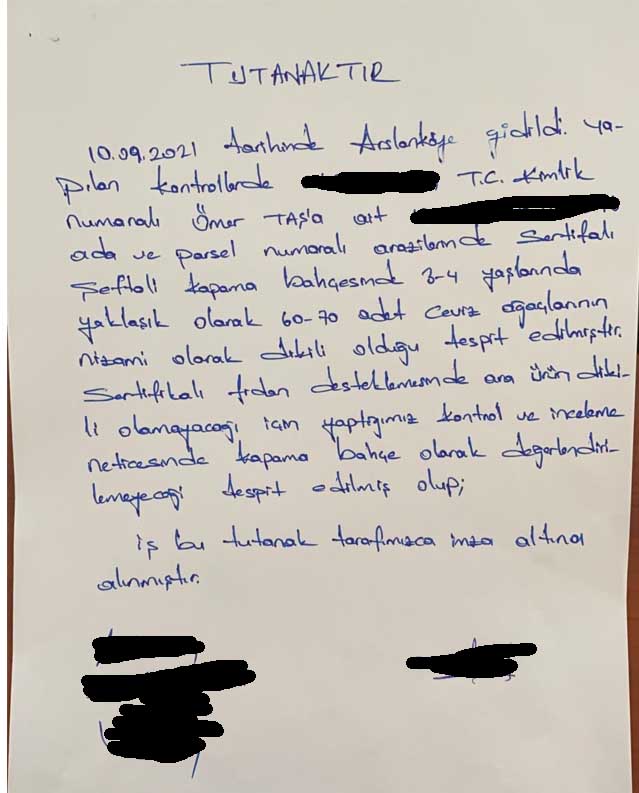 TUTANAKTIR
10.09.2021 tarihinde Arslanköye gidildi. Ya-
pılan kontrollerde T.C. Kimlik
numaralı Ömer TAŞ'a ait
ada ve parsel numaralı arazilerinde Sertifalı
Şeftali kapama bahçesinde 3-4 yaşlarında
yaklaşık olarak 60-70 adet ceviz ağaçlarının
nizami olarak dikili olduğu tespit edilmiştir.
Sertifikalı fidan desteklemesinde ara ürün diki-
li olamayacağı için yaptığımız kontrol ve inceleme
neticesinde kapama bahçe olarak değerlendiri-
lemeyeceği tespit edilmiş olup;
iş bu tutanak tarafımızca imza altına
alınmıştır.